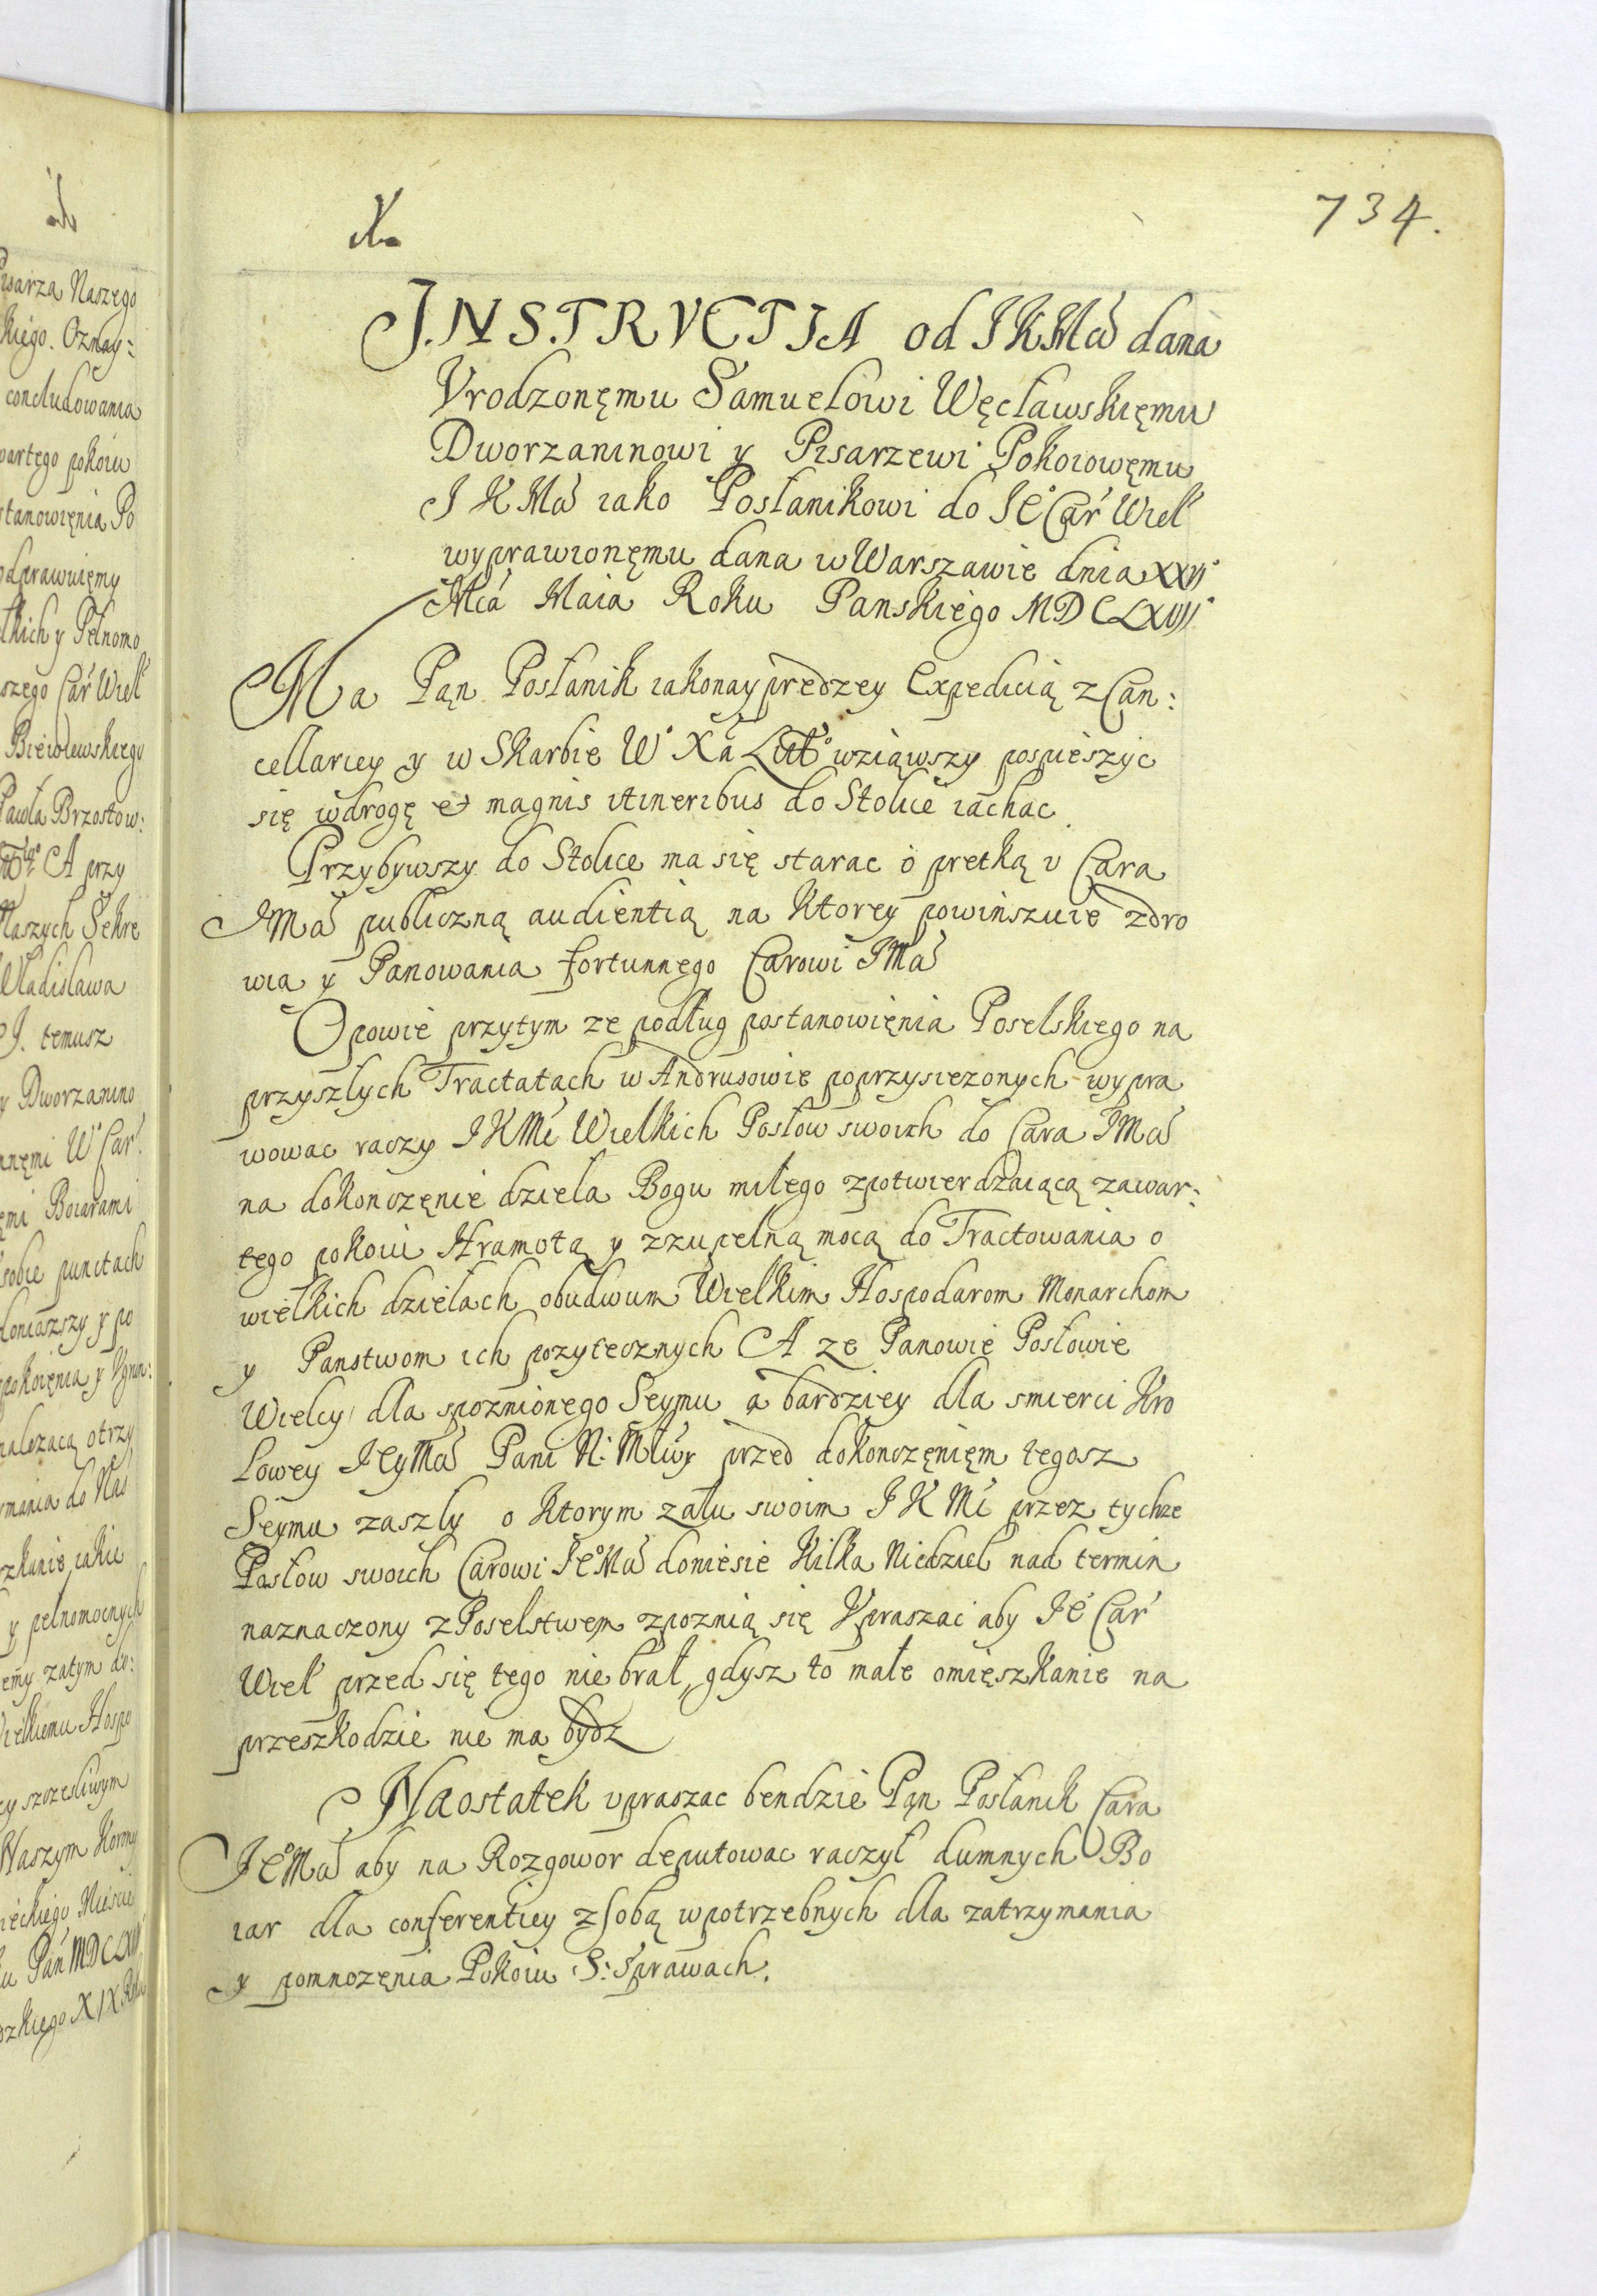 734.
INSTRVCTIA od IKMci dana
Vrodzonęmu Samuelowi Węcławskięmu
Dworzaninowi y Pisarzewi Pokoiowęmu
IKMci iako Posłanikowi do Ie° Car Wieł
wyprawionęmu dana w Warszawie dnia XXVI°
Mca Maia Roku Panskiego MDCLXVII°
Ma Pąn Posłanik iakonayprędzey Expedicią z Can:
cellariey y w Skarbie W° Xa Litt° wziąwszy pospieszyc
się wdrogę et magnis itineribus do Stolice iachac
Przybywszy do Stolice ma się starac o prętką v Cara
IMci publiczną audientią na ktorey powinszuie zdro
wia y Panowania fortunnego Carowi IMci
Opowie przytym ze podług postanowięnia Poselskiego na
przyszłych Tractatach w Andrusowie poprzysiezonych wypra
wowac raczy IKMc Wielkich Posłow swoich do Cara IMci
na dokonczęnie dzieła Bogu miłego zpotwierdzaiącą zawar:
tego pokoiu Hramotą y zzupełną mocą do Tractowania o
wielkich dziełach obudwum Wielkim Hospodarom Monarchom
y Panstwom ich pozytecznych A ze Panowie Posłowie
Wielcy dla spoznionego Seymu a bardziey dla smierci Kro
Lowey IeyMci Pani N: Młwy przed dokonczęnięm tegosz
Seymu zaszły o ktorym zalu swoim IKMc przez tychze
Posłow swoich Carowi Ie°Mci doniesie kilka Niedziel nad termin
naznaczony zPoselstwem zpoznią się Vpraszac aby Ie° Car
Wieł przed się tego nie brał, gdysz to małe omięszkanie na
przeszkodzie nie ma bydz
Naostatek vpraszac bendzie Pąn Posłanik Cara
Ie°Mci aby na Rozgowor deputowac raczył dumnych Bo
iar dla conferentiey zsobą wpotrzebnych dla zatrzymania
y pomnozęnia Pokoiu S: Sprawach.